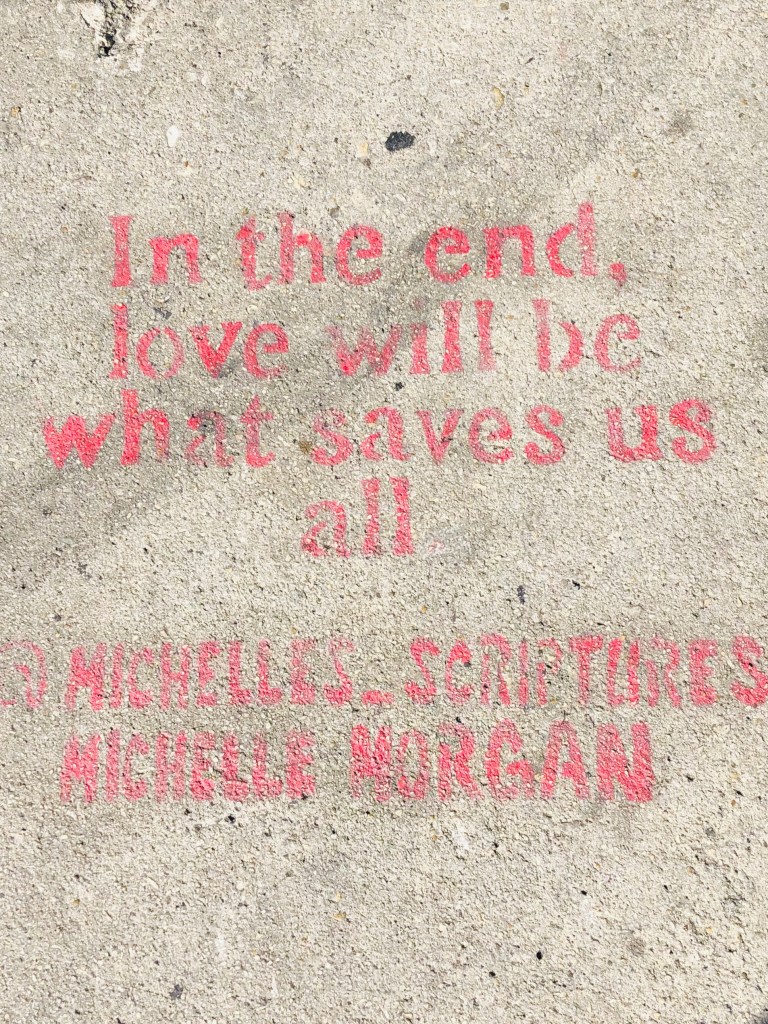 In the end,
love will be
what saves us
all.
@MICHELLES_SCRIPTURES
MICHELLE MORGAN